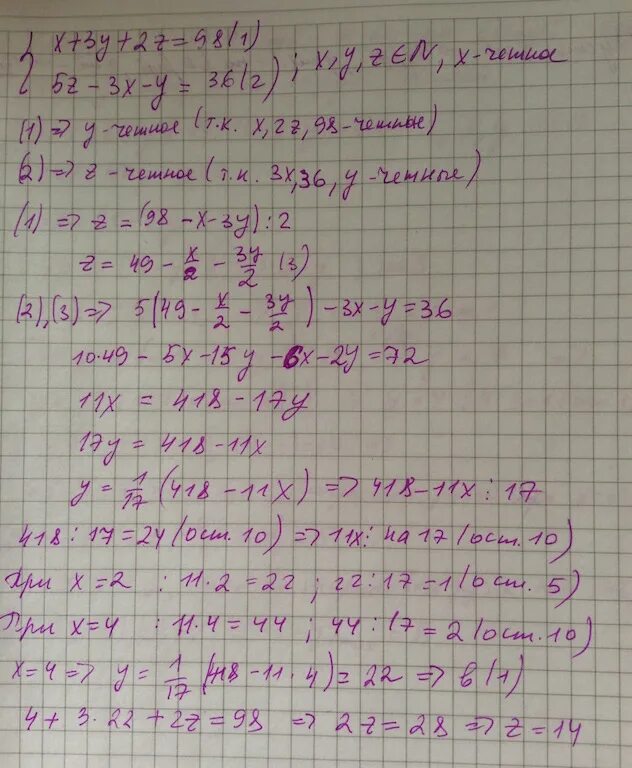 { x+3y+2z=98 (1)
5z-3x-y=36 (2) ; x,y,z∈N, x-четное
(1)=> y-четное (т.к. x,2z,98-четные)
(2)=> z-четное (т.к. 3x,36, y-четные)
(1)=> z=(98-x-3y):2
z=49-x/2-3y/2 (3)
(2),(3)=> 5(49-x/2-3y/2)-3x-y=36
10·49-5x-15y-6x-2y=72
11x=418-17y
17y=418-11x
y=1/17(418-11x)=>418-11x⋮17
418:17=24(ост.10)=>11x⋮на 17(ост.10)
При x=2 : 11·2=22 ; 22:17=1(ост.5)
При x=4 : 11·4=44 ; 44:17=2(ост.10)
x=4=> y=1/17(418-11·4)=22 => в (1)
4+3·22+2z=98 => 2z=28 => z=14